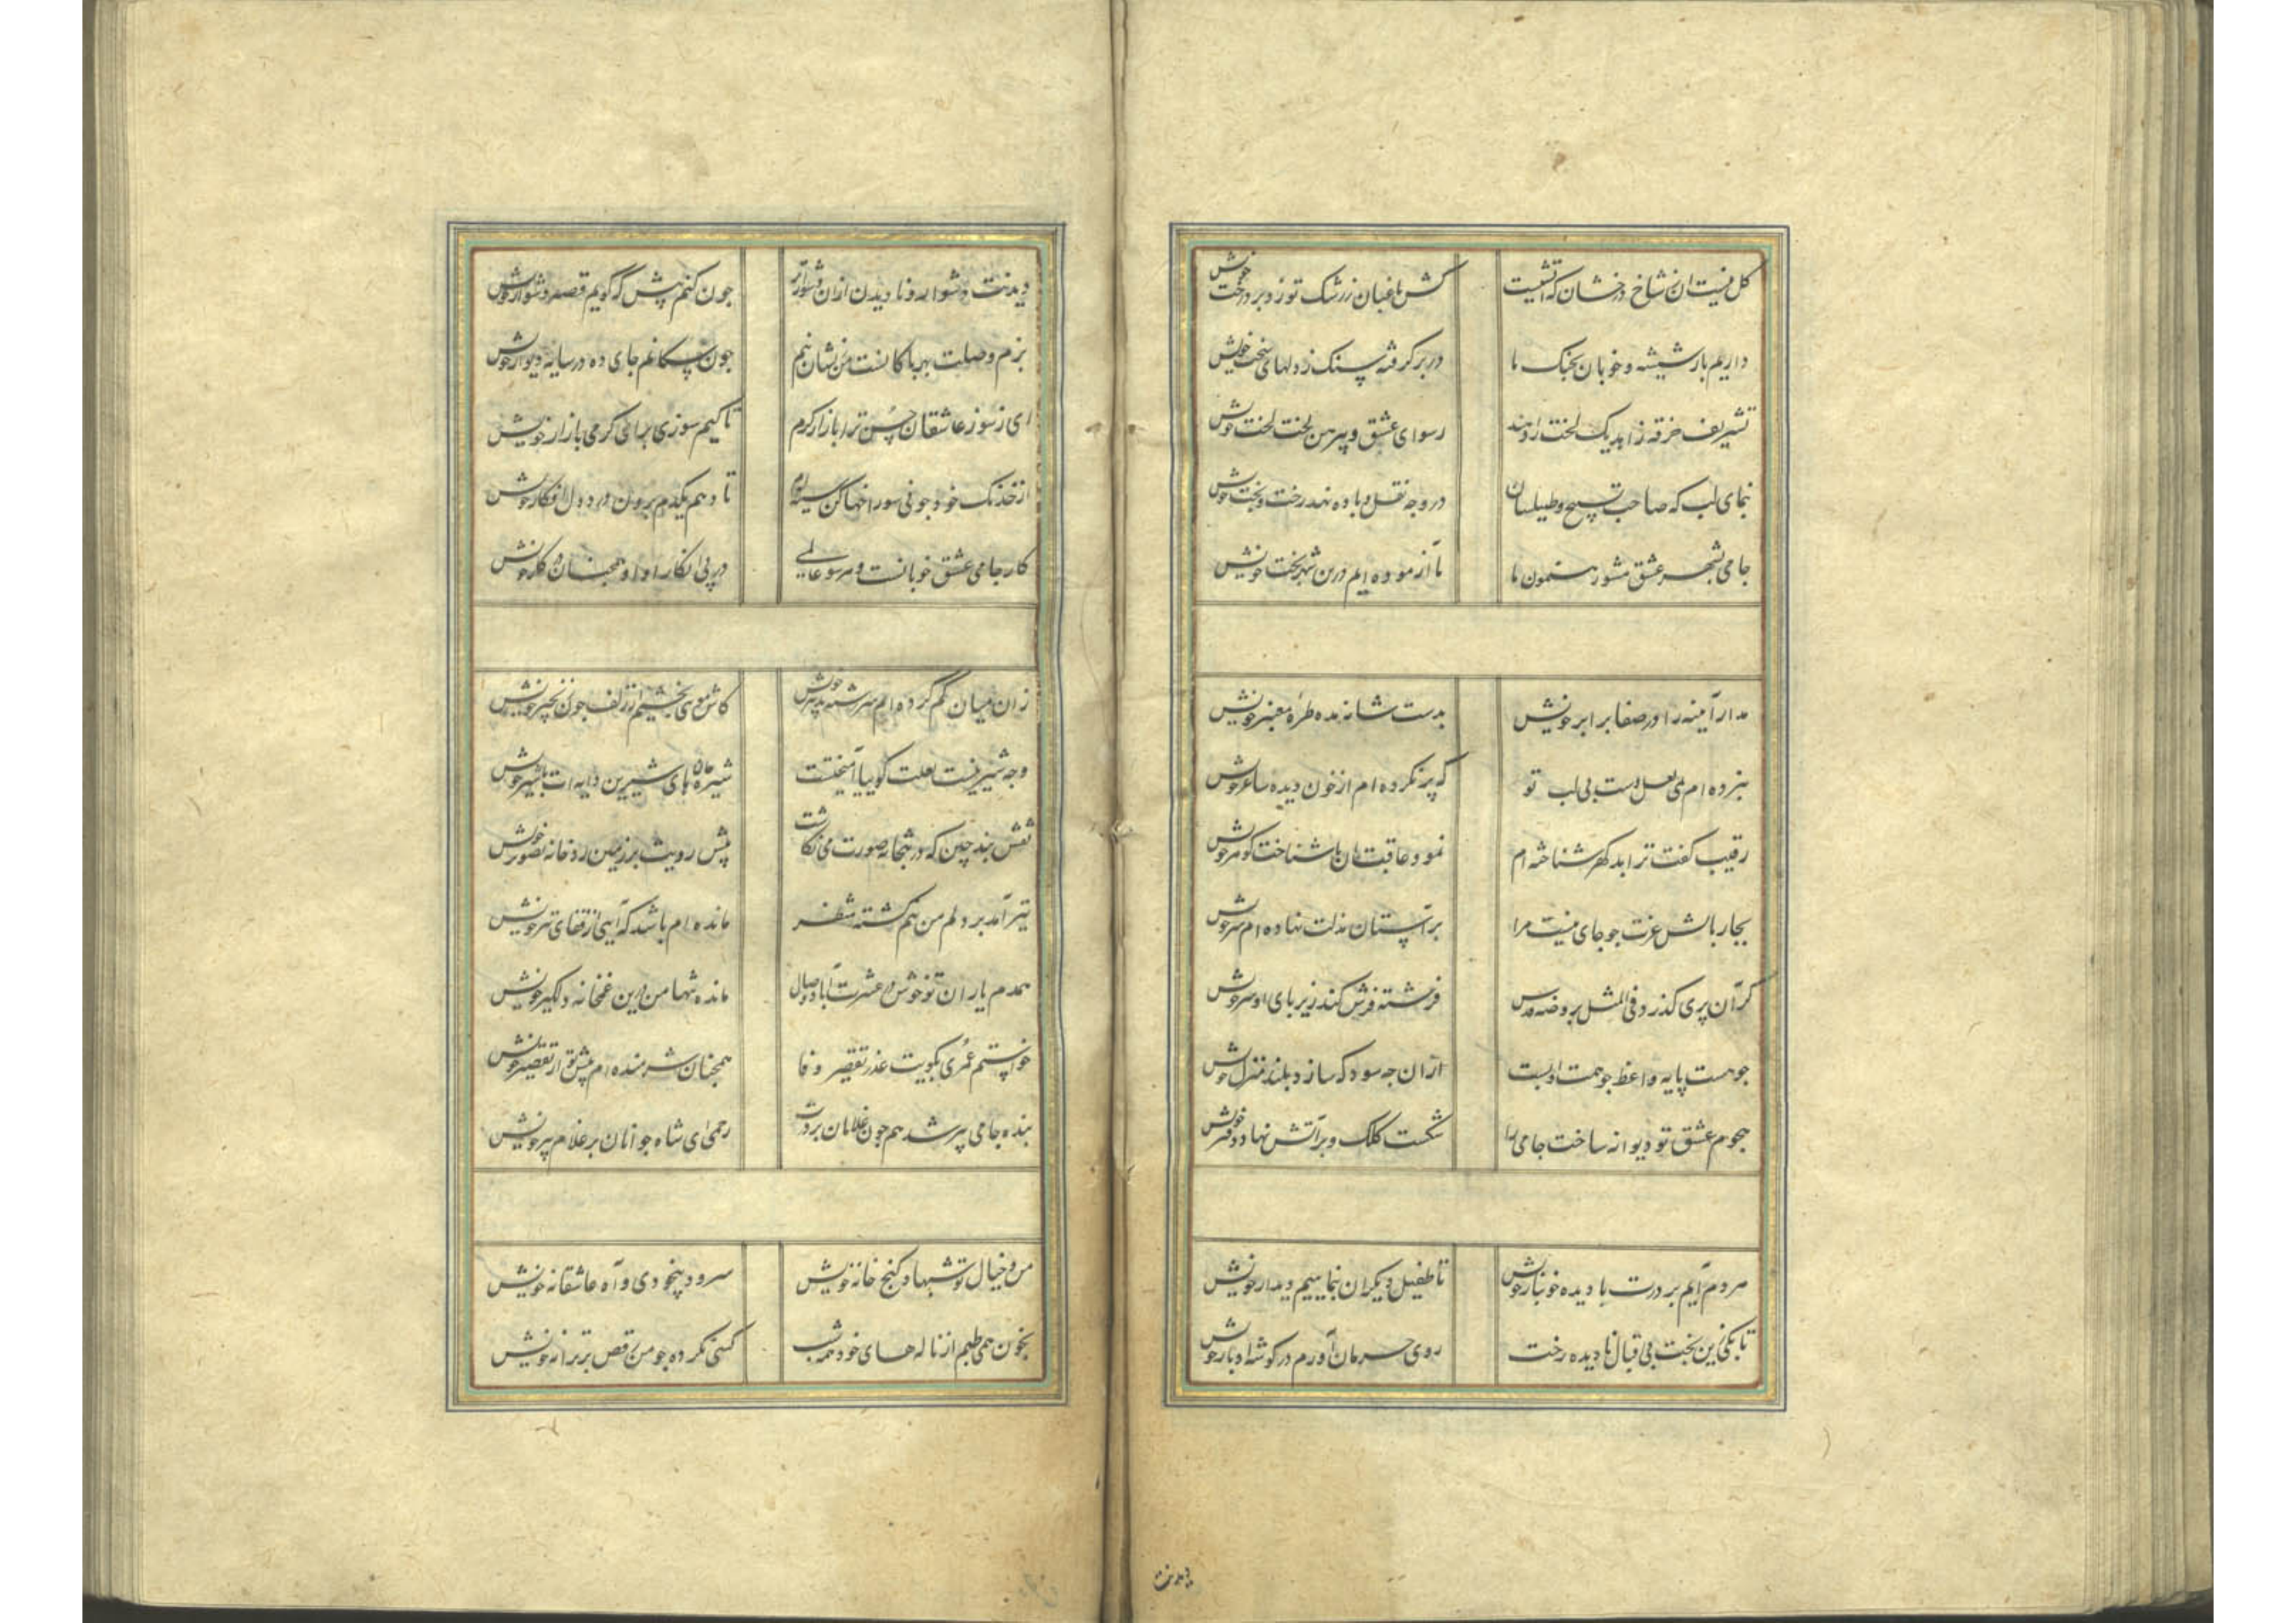 گل نیست آن ز شاخ درخشان که آتشیست کش باغبان ز رشک تو زد بر درخت خویش
داریم بار شیشه و خوبان بجنگ ما در بر گرفته سنگ ز دلهای سخت خویش
تشریف خرقه زاهد یک لخت را دهند رسوای عشق و پیرهن لخت لخت خویش
بنمای لب که صاحب تسبیح و طیلسان در وجه نقل و باده نهد رخت و بخت خویش
جامی بشهر عشق مشو رهنمون ما ما آزموده ایم درین شهر بخت خویش
مدار آینه را در صفا برابر خویش بدست شانه مده طره معنبر خویش
نبرده ام می لعل دست بی لب تو که پر نکرده ام از خون دیده ساغر خویش
رقیب گفت ترا بد گهر شناخته ام نمود عاقبت آن ناشناخت گوهر خویش
بجار بالش عزت جو جای نیست مرا بر آستان مذلت نهاده ام سر خویش
گر آن پری گذرد فی المثل بروضه قدس فرشته فرش کند زیر پای او سر خویش
جو هست پایه واعظ جو همت او پست ازان جه سود که سازد بلند منزل خویش
هجوم عشق تو دیوانه ساخت جامی را شکست کلک و بر آتش نهاد دفتر خویش
هر دم آیم بر درت با دیده خونبار خویش تا طفیل دیگران بنماییم دیدار خویش
تا بکی زین بخت بی اقبال نادیده رخت روی حرمان آورم در گوشه ادبار خویش
دیدنت
دیدنت دشوار و نادیدن ازان دشوارتر جون کنم پیش که گویم قصه دشوار خویش
بزم وصلت بهر پاکانست من زیشان نیم جون سگانم جای ده در سایه دیوار خویش
ای ز سوز عاشقان حسن ترا بازار گرم تا کیم سوزی برای گرمی بازار خویش
از خدنک خود جو نی سوراخها کن سینه ام تا دهم یکدم برون درد دل افکار خویش
کار جامی عشق خوبانست و هر سو عالمی در پی انکار او او همجنان در کار خویش
زان میان گم کرده ام سررشته تدبیر خویش کاش موی بخشیم از زلف جون زنجیر خویش
وجه شیرینیست لعلت گوییا آمیختست شیره جان های شیرین دایه ات با شیر خویش
نقش بند چین که در بتخانه صورت می نگاشت پیش رویت بر زمین زد خانه تصویر خویش
تیر آمد بر دلم من هم گشته منتظر مانده ام باشد که آیی از قفای تیر خویش
همدم یاران تو خوش در عشرت آباد وصال مانده تنها من درین غمخانه دلگیر خویش
خواستم عمری بکویت عذر تقصیر وفا همجنان شرمنده ام پیش تو از تقصیر خویش
بنده جامی پیر شد هم جون غلامان بر درت رحمی ای شاه جوانان بر غلام پیر خویش
من و خیال تو شبها و کنج خانه خویش سرود بیخودی و آه عاشقانه خویش
بخون همی طپم از ناله های خود همه شب کسی نکرده جو من رقص بر ترانه خویش